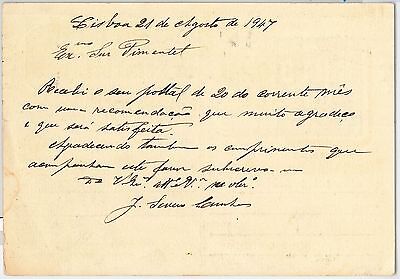 Lisboa 21 de Agosto de 1947
Exmo Snr Pimentel
Recebi o seu postal de 20 do corrente mês
com uma recomendação que muito agradeço
e que será satisfeita.
Agradecendo tambem os cumprimentos que
acompanham este favor subscrevo-me
De V. Exª. attº Vºr
J.